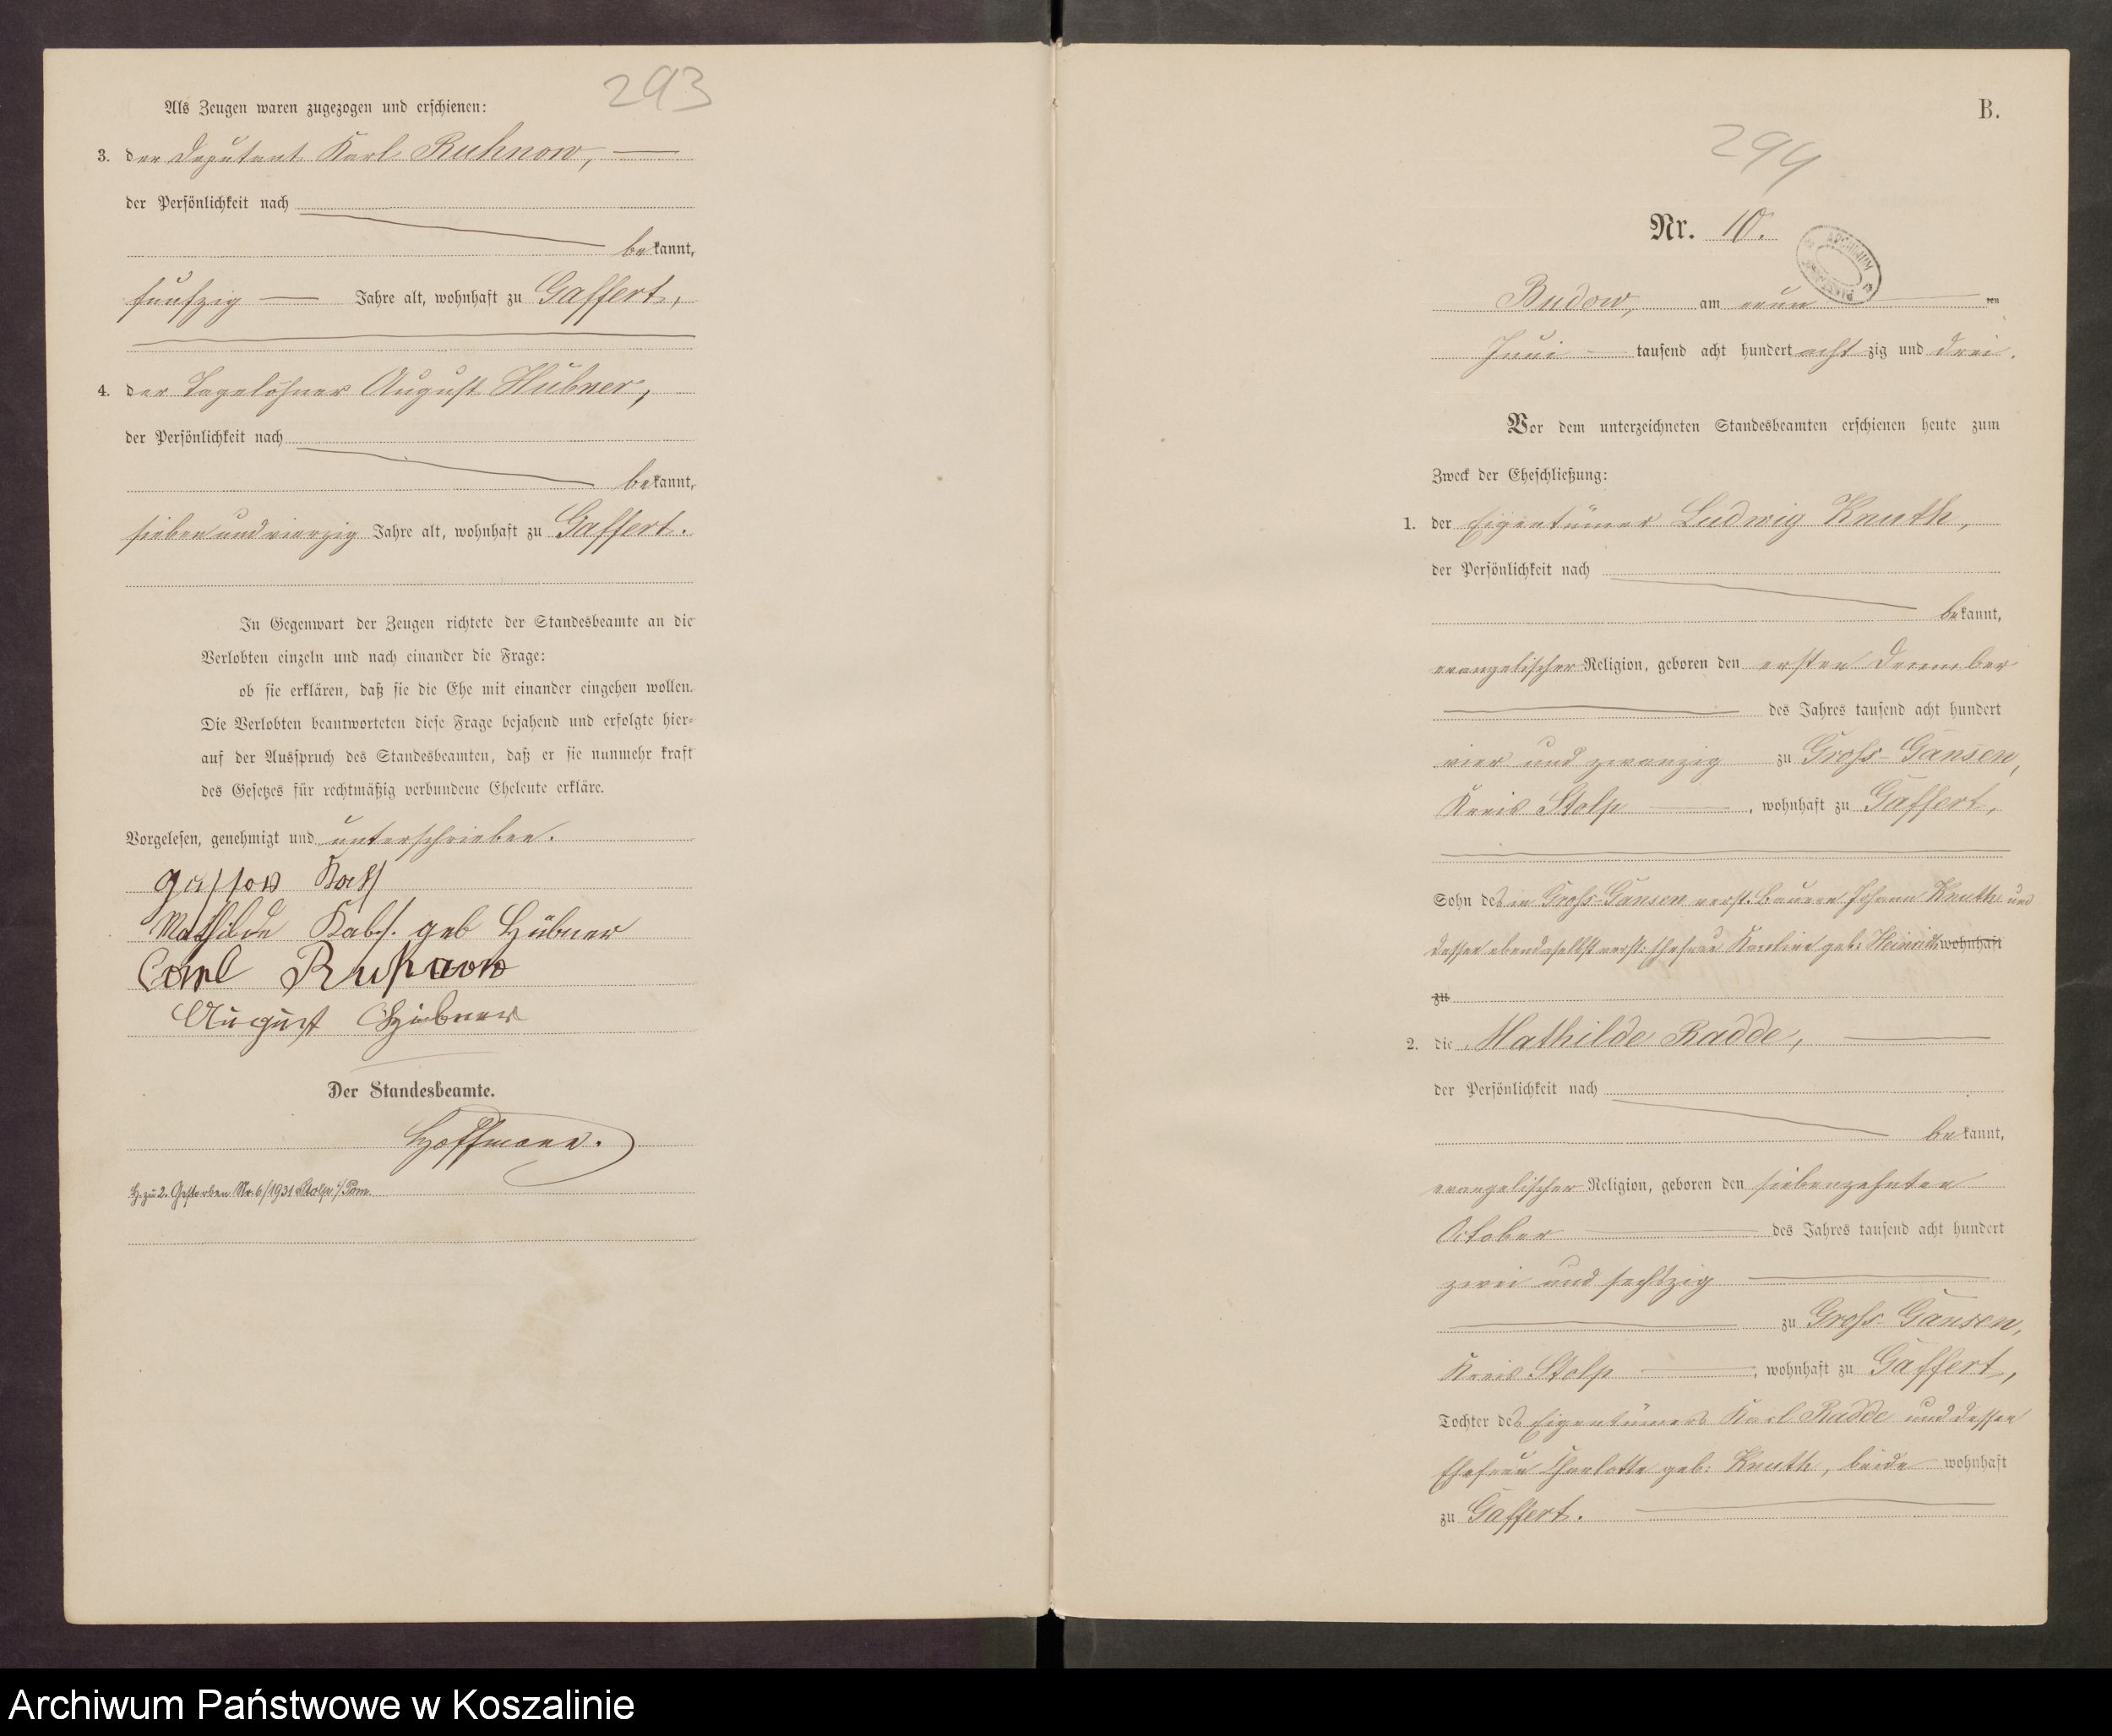 293
Als Zeugen waren zugezogen und erschienen:
3. der Deputant Karl Ruhnow,
der Persönlichkeit nach
bekannt,
fünfzig Jahre alt, wohnhaft zu Gaffert,
4. der Tagelöhner August Hübner,
der Persönlichkeit nach
bekannt,
siebenundvierzig Jahre alt, wohnhaft zu Gaffert.
In Gegenwart der Zeugen richtete der Standesbeamte an die
Verlobten einzeln und nach einander die Frage:
ob sie erklären, daß sie die Ehe mit einander eingehen wollen.
Die Verlobten beantworteten diese Frage bejahend und erfolgte hier-
auf der Ausspruch des Standesbeamten, daß er sie nunmehr kraft
des Gesetzes für rechtmäßig verbundene Eheleute erkläre.
Vorgelesen, genehmigt und unterschrieben.
Mathilde geb Hübner
Carl Ruhnow
August Hübner
Der Standesbeamte.
Hoffmann.
H. zu 2. Gestorben Nr. 6/1931 Stolp i/Pom.
B.
294
Nr. 10.
Budow, am neun ten
Juni tausend acht hundert acht zig und drei.
Vor dem unterzeichneten Standesbeamten erschienen heute zum
Zweck der Eheschließung:
1. der Eigentümer Ludwig Knuth,
der Persönlichkeit nach
bekannt,
evangelischer Religion, geboren den ersten Dezember
des Jahres tausend acht hundert
vier und zwanzig zu Groß-Gansen,
Kreis Stolp, wohnhaft zu Gaffert,
Sohn des in Groß-Gansen verst. Bauern Johann Knuth und
dessen ebendaselbst verst. Ehefrau Karoline geb: Heinrich wohnhaft
zu
2. die Mathilde Radde,
der Persönlichkeit nach
bekannt,
evangelischer Religion, geboren den siebenzehnten
October des Jahres tausend acht hundert
zwei und sechszig
zu Groß-Gansen,
Kreis Stolp, wohnhaft zu Gaffert,
Tochter des Eigentümers Karl Radde und dessen
Ehefrau Charlotte geb: Knuth, beide wohnhaft
zu Gaffert.
Archiwum Państwowe w Koszalinie